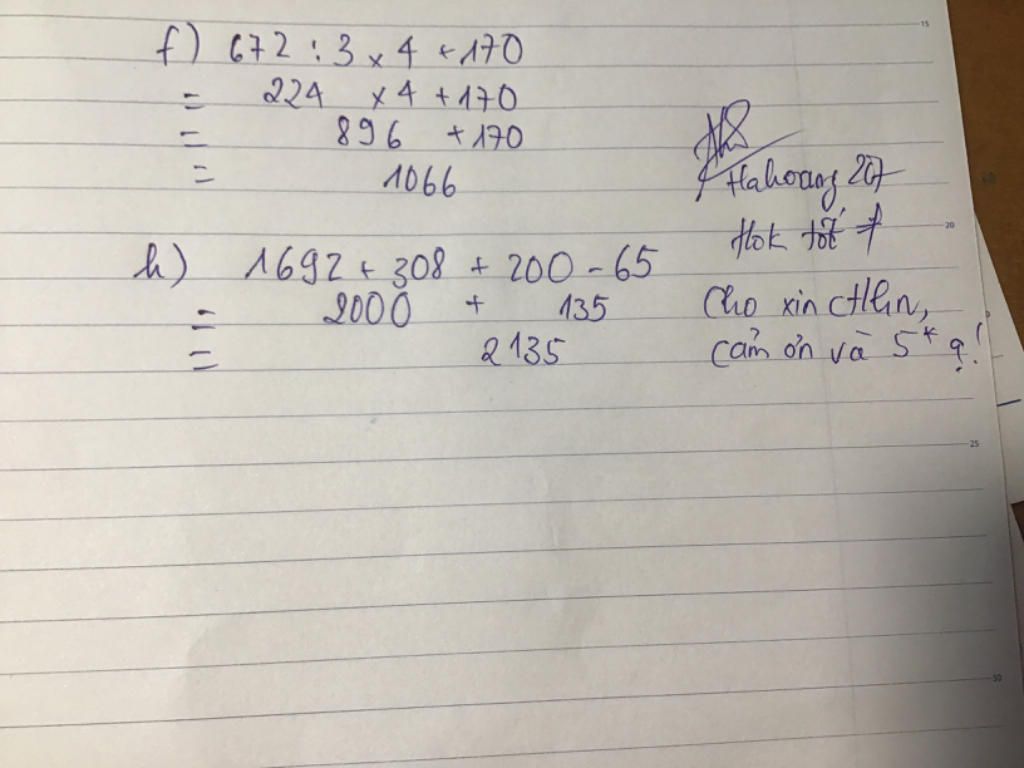 f) 672 : 3 x 4 + 170
= 224 x 4 + 170
= 896 + 170
= 1066
h) 1692 + 308 + 200 - 65
= 2000 + 135
= 2135
Hahoang 207
Hok tốt
Cho xin ctlhn,
cảm ơn và 5* ạ!
15
20
25
30